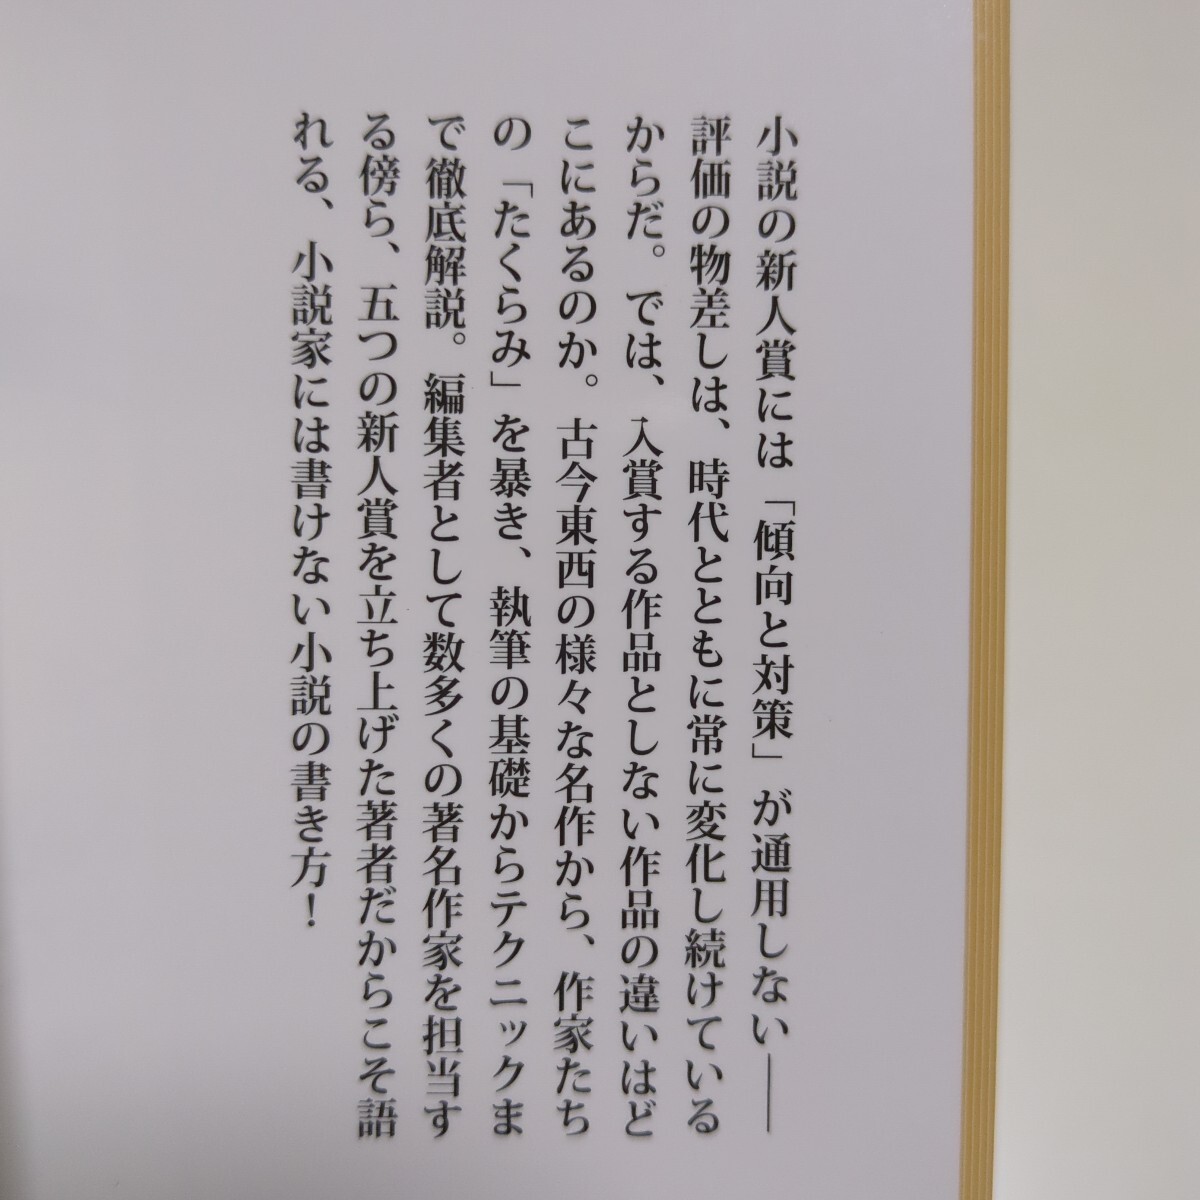 小説の新人賞には「傾向と対策」が通用しない――
評価の物差しは、時代とともに常に変化し続けている
からだ。では、入賞する作品としない作品の違いはど
こにあるのか。古今東西の様々な名作から、作家たち
の「たくらみ」を暴き、執筆の基礎からテクニックま
で徹底解説。編集者として数多くの著名作家を担当す
る傍ら、五つの新人賞を立ち上げた著者だからこそ語
れる、小説家には書けない小説の書き方！